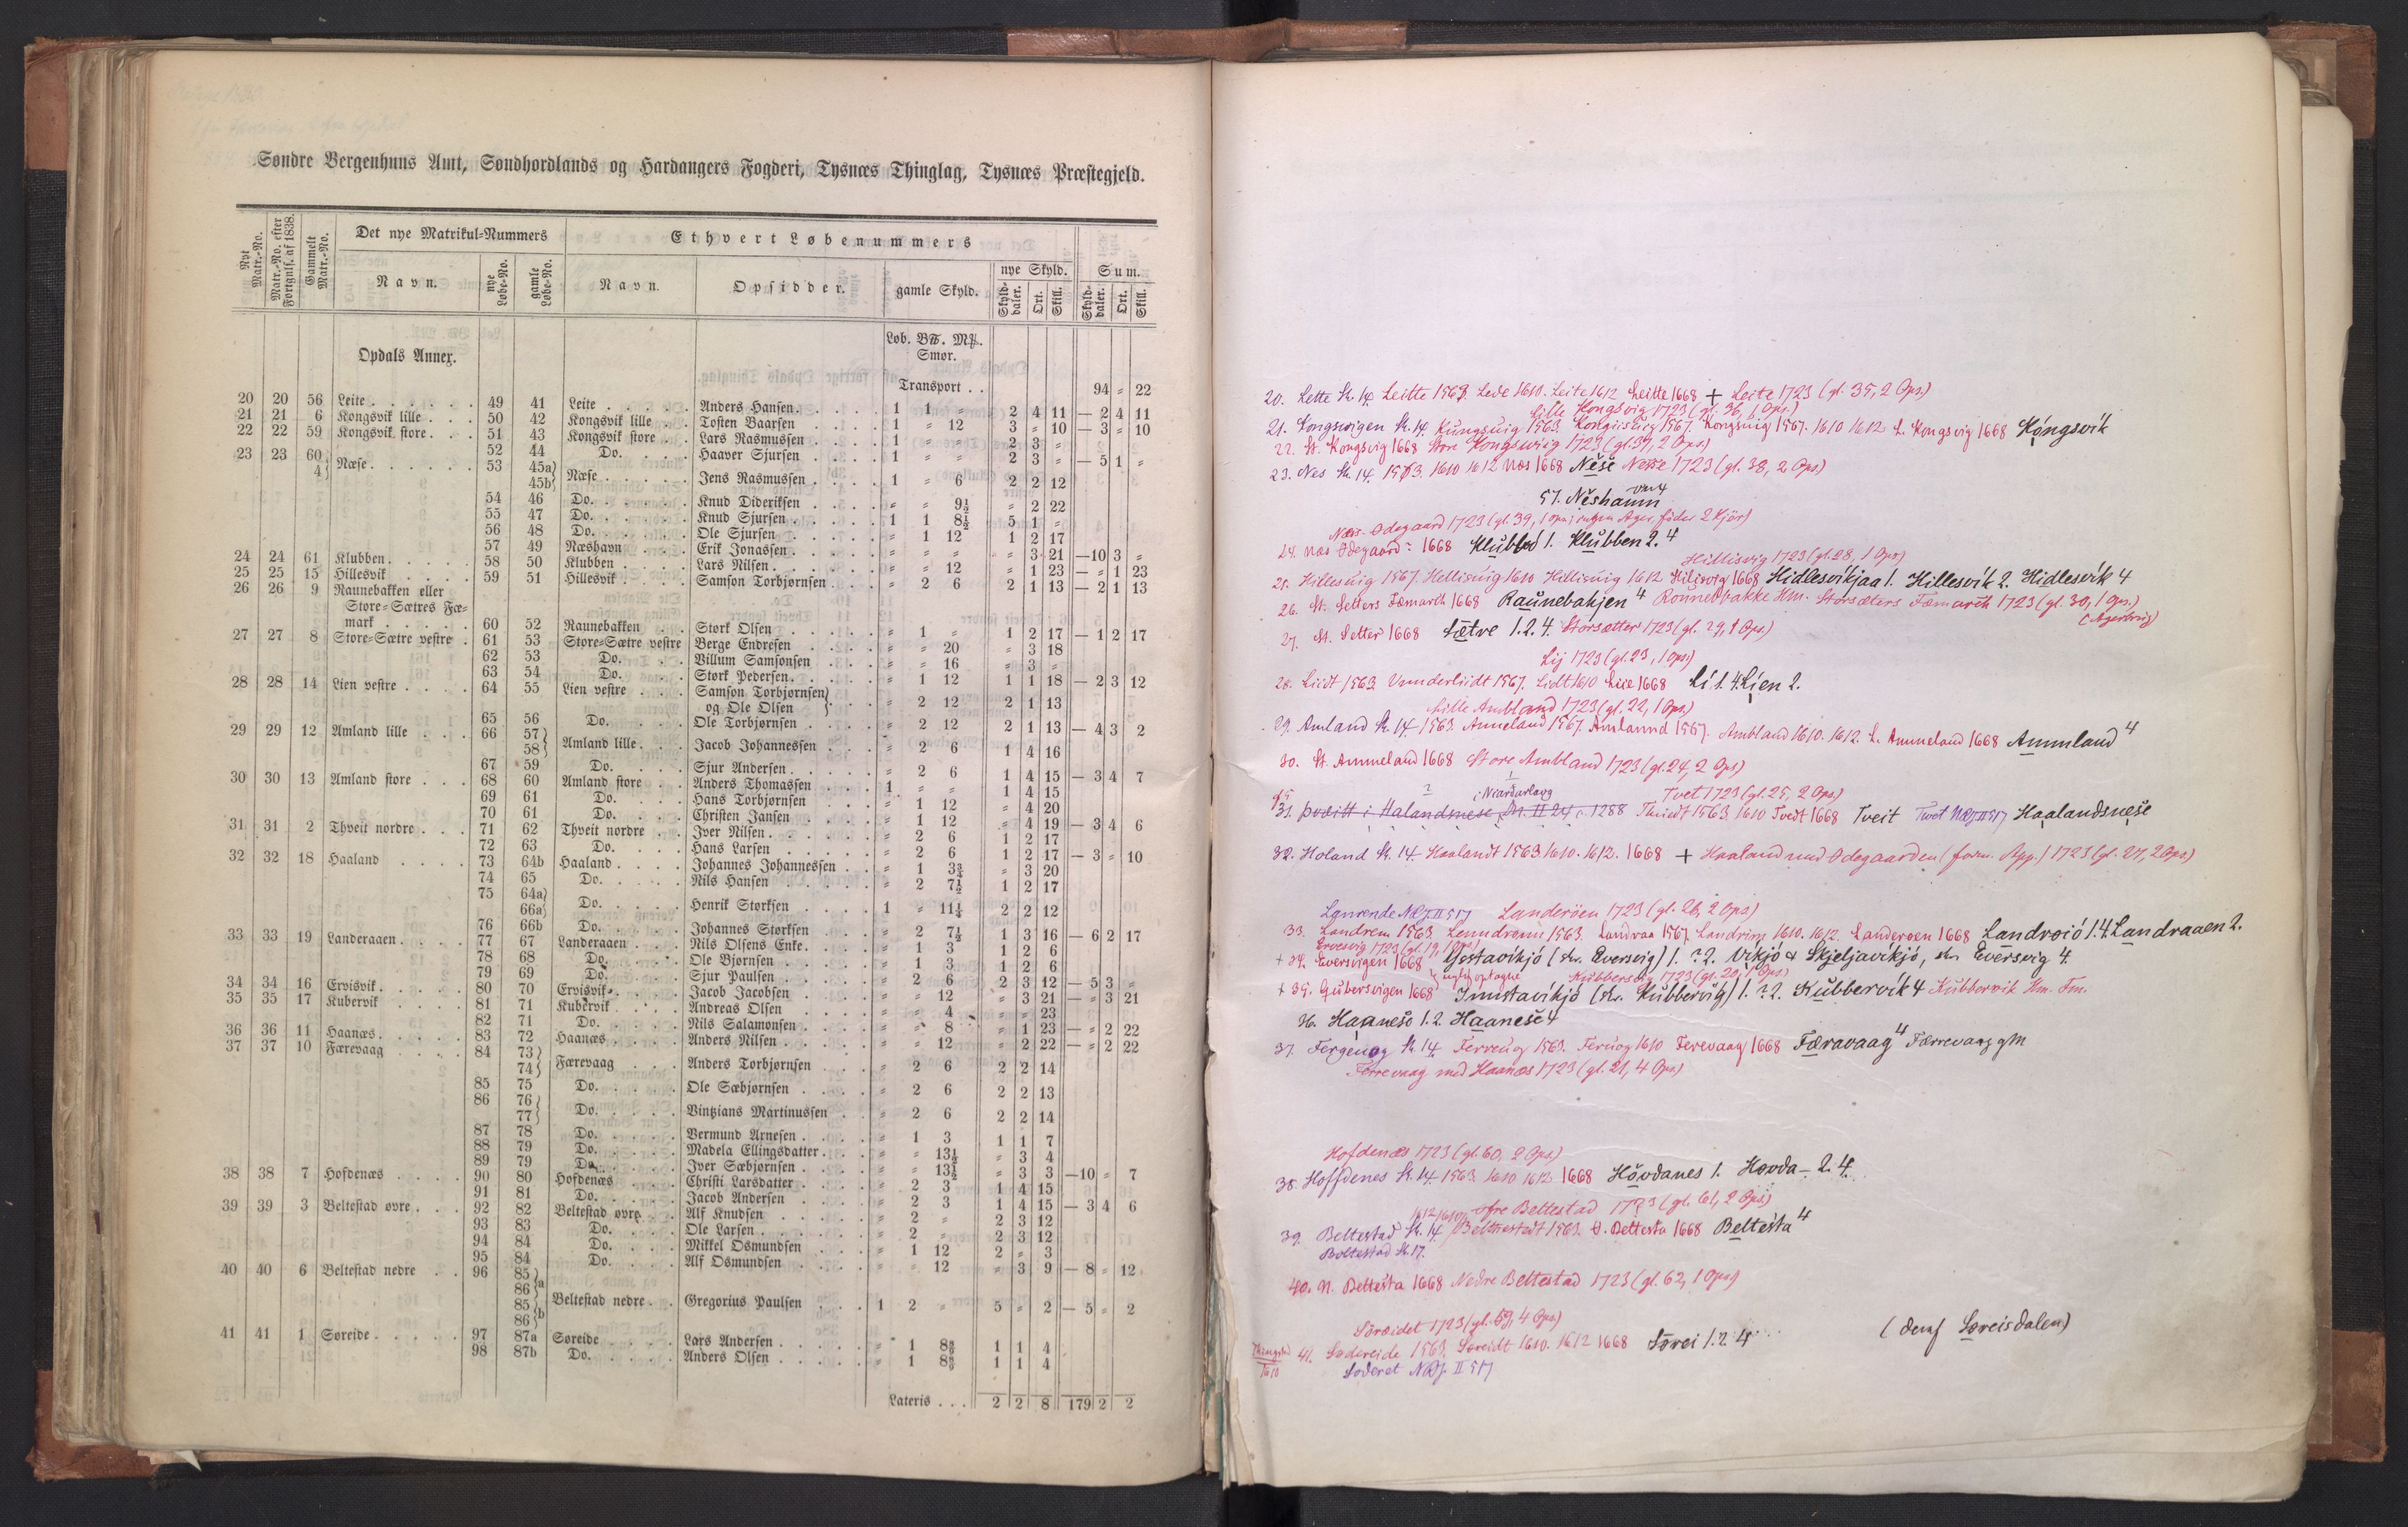 Søndre Bergenhuus Amt, Søndhordlands og Hardangers Fogderi, Tysnæs Thinglag, Tysnæs Præstegjeld.
Nye Matr.-No.
Matr.-No. efter Fortgnls. af 1838.
Gammelt Matr.-No.
Det nye Matrikul-Nummers
Ethvert Løbenummers
Navn.
nye Løbe-No.
gamle Løbe-No.
Navn.
Opsidder.
gamle Skyld.
nye Skyld.
Sum.
Skylddaler. Ort. Skill.
Skylddaler. Ort. Skill.
Opdals Annex.
Løb. B℔. M℔.
Smør.
Transport . . 94 = 22
20 20 56 Leite . . . 49 41 Leite . . . Anders Hansen . . . 1 1 = 2 4 11 — 2 4 11
21 21 6 Kongsvik lille . . 50 42 Kongsvik lille . . Tosten Baarsen . . 1 = 12 3 = 10 — 3 = 10
22 22 59 Kongsvik store . . 51 43 Kongsvik store . . Lars Rasmussen . . 1 = = 2 3 =
52 44 Do. Haaver Sjursen . . 1 = = 2 3 = — 5 1 =
23 23 60 4} Næse . . . 53 45a 45b} Næse . . . Jens Rasmussen . . 1 = 6 2 2 12
54 46 Do. Knud Dideriksen . . = = 9½ = 2 22
55 47 Do. Knud Sjursen . . 1 1 8½ 5 1 =
56 48 Do. Ole Sjursen . . = 1 12 1 2 17
57 49 Næshavn Erik Jonassen . . = = = = 3 21 — 10 3 =
24 24 61 Klubben . . . 58 50 Klubben . . . Lars Nilsen . . = = 12 = 1 23 — = 1 23
25 25 15 Hillesvik . . . 59 51 Hillesvik . . . Samson Torbjørnsen . . = 2 6 2 1 13 — 2 1 13
26 26 9 Raunebakken eller
Store-Sætres Fæ-
mark . . . 60 52 Raunebakken . . Størk Olsen . . = 1 = 1 2 17 — 1 2 17
27 27 8 Store-Sætre vestre . 61 53 Store-Sætre vestre Berge Endresen . . = = 20 = 3 18
62 53 Do. Villum Samsonsen . . = = 16 = 3 =
63 54 Do. Størk Pedersen . . = 1 12 1 1 18 — 2 3 12
28 28 14 Lien vestre . . . 64 55 Lien vestre . . . Samson Torbjørnsen
og Ole Olsen } = 2 12 2 1 13
65 56 Do. Ole Torbjørnsen . . = 2 12 2 1 13 — 4 3 2
29 29 12 Amland lille . . . 66 57 58} Amland lille . . Jacob Johannessen . . = 2 6 1 4 16
67 59 Do. Sjur Andersen . . = 2 6 1 4 15 — 3 4 7
30 30 13 Amland store . . . 68 60 Amland store . . Anders Thomassen . . 1 = = 1 4 15
69 61 Do. Hans Torbjørnsen . . = 1 12 = 4 20
70 61 Do. Christen Jansen . . = 1 12 = 4 19 — 3 4 6
31 31 2 Thveit nordre . . . 71 62 Thveit nordre . . Iver Nilsen . . = 2 6 1 2 17
72 63 Do. Hans Larsen . . = 2 6 1 2 17 — 3 = 10
32 32 18 Haaland . . . 73 64b Haaland . . . Johannes Johannessen . . = 1 3¾ = 3 20
74 65 Do. Nils Hansen . . = 2 7½ 1 2 17
75 64a 66a} Do. Henrik Størksen . . 1 = 11¼ 2 2 12
76 66b Do. Johannes Størksen . . = 2 7½ 1 3 16 — 6 2 17
33 33 19 Landeraaen . . . 77 67 Landeraaen . . . Nils Olsens Enke . . = 1 3 1 2 6
78 68 Do. Ole Bjørnsen . . = 1 3 1 2 6
79 69 Do. Sjur Paulsen . . = 2 6 2 3 12 — 5 3 =
34 34 16 Ervisvik . . . 80 70 Ervisvik . . . Jacob Jacobsen . . = = 12 = 3 21 — = 3 21
35 35 17 Kubervik . . . 81 71 Kubervik . . . Andreas Olsen . . = = 4 = = 23
82 71 Do. Nils Salamonsen . . = = 8 = 1 23 — = 2 22
36 36 11 Haanæs . . . 83 72 Haanæs . . . Anders Nilsen . . = = 12 = 2 22 — = 2 22
37 37 10 Færevaag . . . 84 73 74} Færevaag . . . Anders Torbjørnsen . . = 2 6 2 2 14
85 75 Do. Ole Sæbjørnsen . . = 2 6 2 2 13
86 76 77} Do. Vintzians Martinussen . . = 2 6 2 2 14
87 78 Do. Vermund Arnesen . . = 1 3 1 1 7
88 79 Do. Madela Ellingsdatter . . = = 13½ = 3 4
89 79 Do. Iver Sæbjørnsen . . = = 13½ = 3 3 — 10 = 7
38 38 7 Hofdenæs . . . 90 80 Hofdenæs . . . Christi Larsdatter . . = 2 3 1 4 15
91 81 Do. Jacob Andersen . . = 2 3 1 4 15 — 3 4 6
39 39 3 Beltestad øvre . . . 92 82 Beltestad øvre . . Alf Knudsen . . = 2 = 2 3 12
93 83 Do. Ole Larsen . . = 2 = 2 3 12
94 84 Do. Mikkel Osmundsen . . = 1 12 2 = 3
95 84 Do. Alf Osmundsen . . = = 12 = 3 9 — 8 = 12
40 40 6 Beltestad nedre . . 96 85 86}a 85 86}b Beltestad nedre . . Gregorius Paulsen . . 1 2 = 5 = 2 — 5 = 2
41 41 1 Søreide . . . 97 87a Søreide . . . Lars Andersen . . = 1 8⅝ 1 1 4
98 87b Do. Anders Olsen . . = 1 8⅝ 1 1 4
Lateris . . . 2 2 8 179 2 2
20. Lette St. 14. Leitte 1563. Lede 1610. Leite 1612 Leitte 1668 + Leite 1723 (gl. 35, 2 Ops.)
Lille Kongsvig 1723 (gl. 36, 1 Ops.)
21. Kongsvigen St. 14. Kungsuig 1563. 1567. Kongsuig 1567. 1610 1612 L. Kongsvig 1668 Kongsvik
22. St. Kongsvig 1668 Store Kongswiig 1723 (gl. 37, 2 Ops.)
23. Nes St. 14. 1563. 1610 1612 Næs 1668 Nese Nesse 1723 (gl. 38, 2 Ops.)
57. Neshamn 4
Næs-Ødegaard 1723 (gl. 39, 1 Ops; ingen Ager, føder 2 Kjør)
24. Næs Ødegaard: 1668 1. Klubben 2. 4
Hillisvig 1723 (gl. 28, 1 Ops)
25. Hillesuig 1567. Hellisuig 1610 Hillisuig 1612 Hilisvig 1668 Hidlesvikjaa 1. Hillesvik 2. Hidlesvik 4
26. St. Setters Fæmarch 1668 Raunebakjen 4 Rounebbakke Hm. Storsæters Fæmarch 1723 (gl. 30, 1 Ops.)
27. St. Setter 1668 Sætre 1. 2. 4. Storsætter 1723 (gl. 29, 1 Ops.)
Lij 1723 (gl. 23, 1 Ops)
28. Liidt 1563 Vnnderliidt 1567. Lidt 1610 Liie 1668 Li 1. 4. Lien 2.
Lille Ambland 1723 (gl. 22, 1 Ops)
29. Amland St. 14 1563. Anneland 1567. Amlannd 1567. Ambland 1610. 1612. L. Ammeland 1668 Ammland 4
30. St. Ammeland 1668 Store Ambland 1723 (gl. 24, 2 Ops)
Tvet 1723 (gl. 25, 2 Ops.)
31. þveitt i Halandsnese i Niardarlaug 1288 1563. 1610 Tvedt 1668 Tveit Tvet NRJ II 517 Haalandsnese
32. Holand St. 14. Haalandt 1563. 1610. 1612. 1668 + Haaland med Ødegaarden (form. App.) 1723 (gl. 27, 2 Ops)
NRJ II 517 Landerøen 1723 (gl. 26, 2 Ops)
33. Landrem 1563. 1563. Landraa 1567. 1610. 1612. Landerøen 1668 Landroió 1. 4. Landraaen 2.
Ervesvig 1723 (gl. 19, 1 Ops)
+ 34. Eversvigen 1668 Ystavikjó (skr. Eversvig) 1. ? 2. Vikjó & Skjeljavikjó, skr. Eversvig 4.
Kubbersvig 1723 (gl. 20, 1 Ops)
+ 35. Gubersvigen 1668 Innstavikjó (skr. Kubbervig) 1. ? 2. Kubbervik 4 Kubbervik Hm. Fm.
36. Haaneso 1. 2. Haanese 4
37. St. 14. Ferreuog 1563. Feruog 1610 Ferevaag 1668 Færavaag 4 Færrevaag gm
Færrevaag med Haanæs 1723 (gl. 21, 4 Ops)
Hofdenæs 1723 (gl. 60, 2 Ops.)
38. Hoffdenes St. 14 1563. 1610 1612 1668 Hòvdanes 1. Hovda— 2. 4.
1612 1610 Øfre Beltestad 1723 (gl. 61, 2 Ops)
39. Beltestad St. 14. 1563. Ø. Beltesta 1668 Beltesta 4
Boltestad St. 17.
40. N. Beltesta 1668 Nedre Beltestad 1723 (gl. 62, 1 Ops)
Søreidet 1723 (gl. 59, 4 Ops)
(dermf Søreisdalen)
Thingsted 1610
41. Sødereide 1563. Søreidt 1610. 1612 1668 Sørei 1. 2. 4
Soderet NRJ. II 517